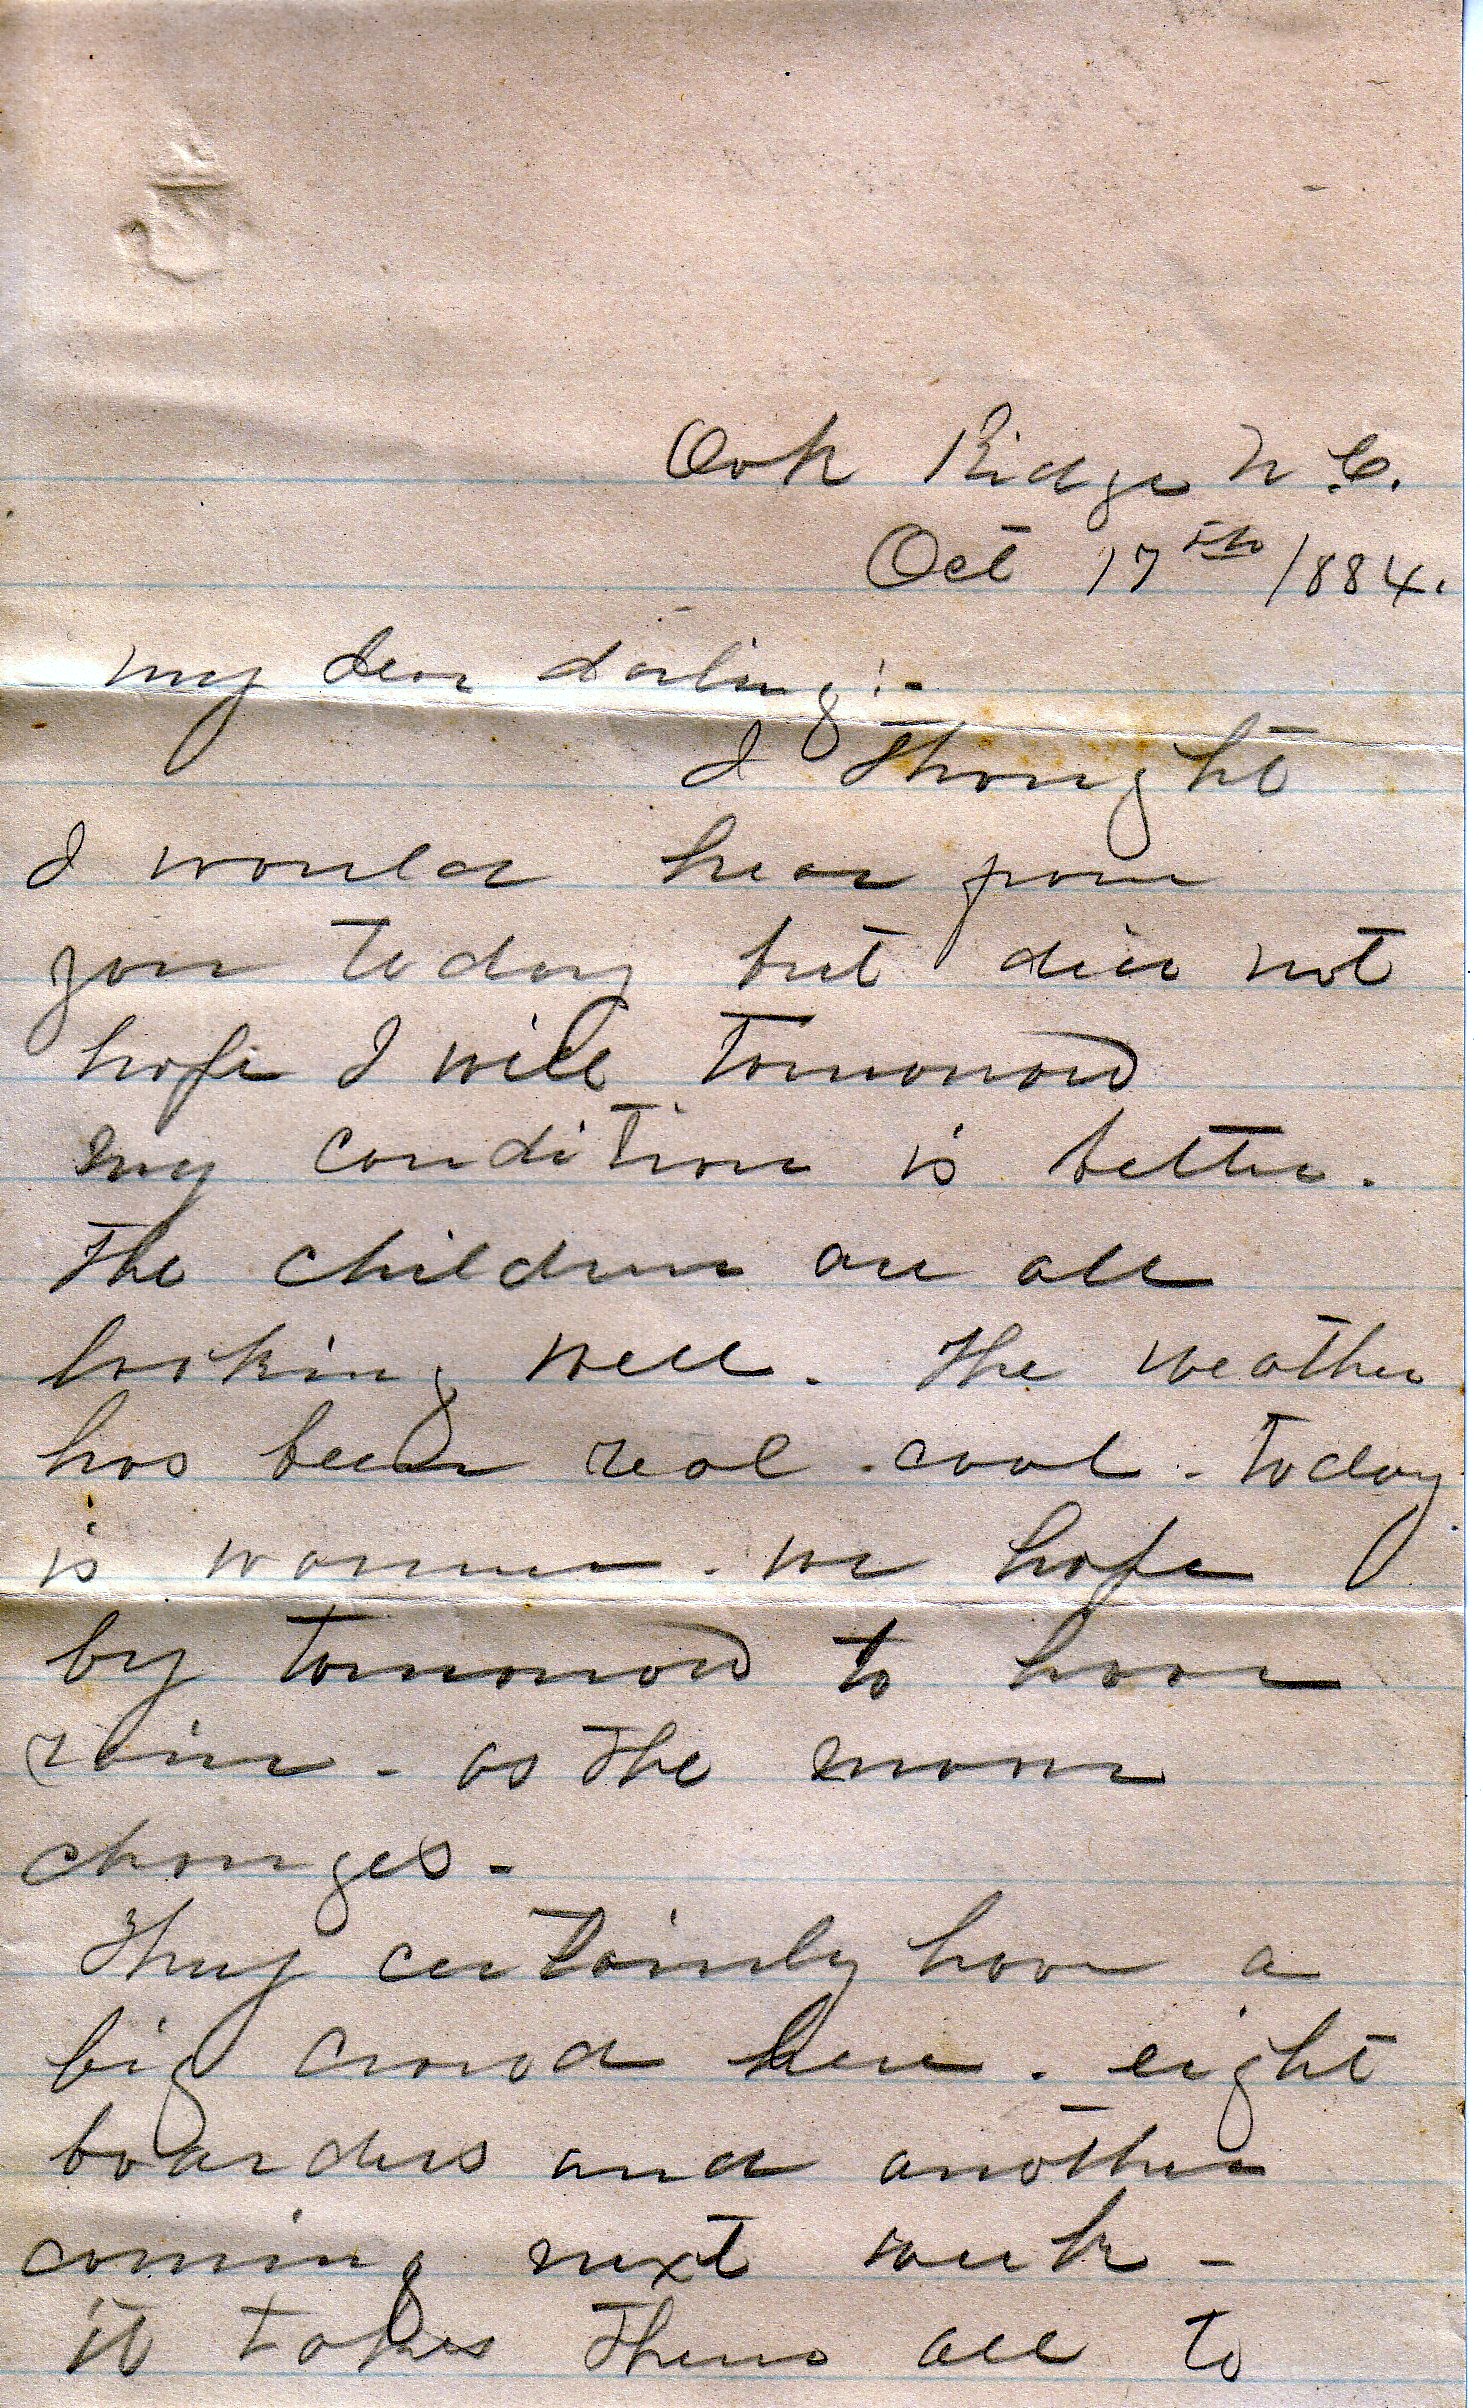 Oak Ridge N.C.
Oct 17th 1884.
my dear darling:-
I thought
I would hear from
you today but did not
hope I will tomorrow
my condition is better.
The children are all
looking well. The weather
has been real cool. today
is warmer. we hope
by tomorrow to have
rain - as the moon
changes -
They certainly have a
big crowd here. eight
boarders and another
coming next week -
it takes them all to